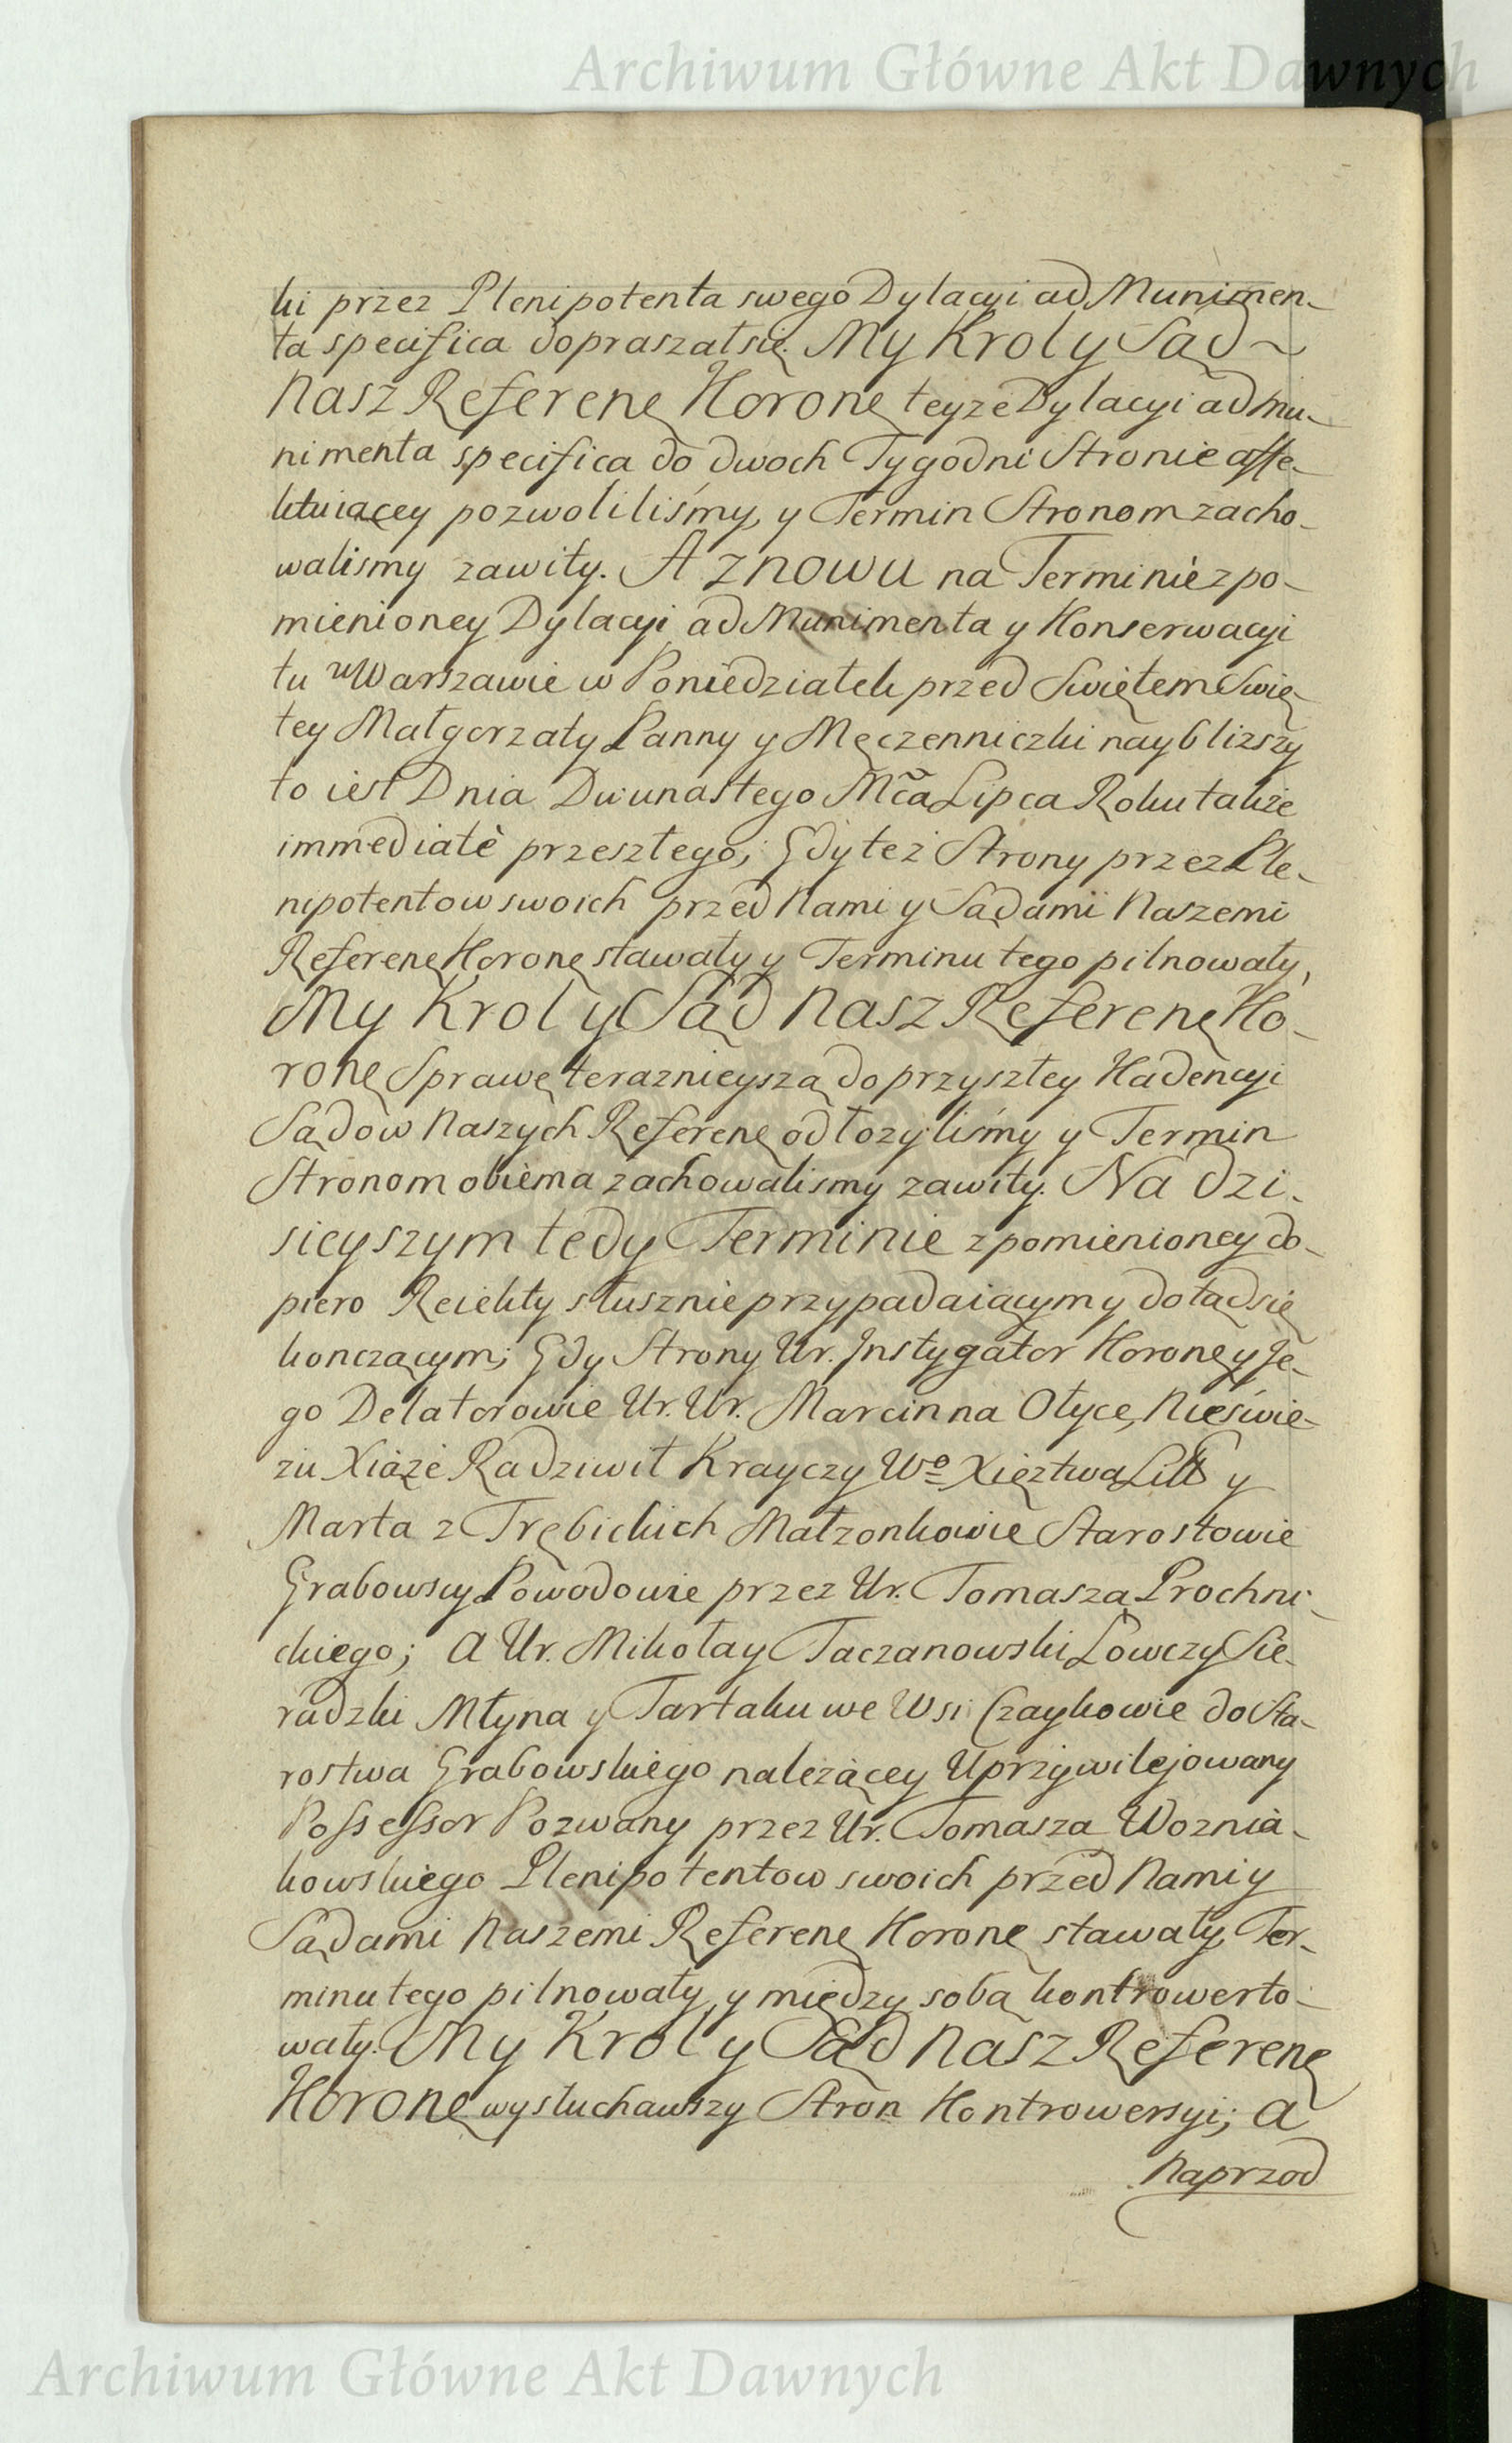 Archiwum Główne Akt Dawnych
ki przez Plenipotenta swego Dylacyi ad Munimen-
ta specifica dopraszał się. My Krol y Sąd ~
Nasz Referenę Koronę teyże Dylacyi ad Mu-
nimenta specifica do dwoch Tygodni Stronie affe-
ktuiącey pozwoliliśmy, y Termin Stronom zacho-
walismy zawity. A znowu na Terminie z po-
mienioney Dylacyi ad Munimenta y Konserwacyi
tu w Warszawie w Poniedziałek przed Swiętem Swię-
tey Małgorzaty Panny y Męczenniczki naybliższy
to iest Dnia Dwunastego Mca Lipca Roku także
immediatè przeszłego; Gdy też Strony przez Ple-
nipotentow swoich przed Nami y Sądami Naszemi
Referenę Koronę stawały y Terminu tego pilnowały,
My Krol y Sąd Nasz Referenę Ko-
ronę Sprawę terazniejszą do przyszłey Kadencyi
Sądow Naszych Referenę odłożyliśmy y Termin
Stronom obiema zachowalismy zawity. Na dzi-
sieyszym tedy Terminie z pomienioney do-
piero Reiekty słusznie przypadaiącym y dotąd się
konczącym; Gdy Strony Ur. Instygator Koronę y Je-
go Delatorowie Ur. Ur. Marcin na Ołyce, Nieświe-
żu Xiążę Radziwił Krayczy Wo Xięztwa Litt y
Marta z Trębickich Małzonkowie Starostowie
Grabowscy Powodowie przez Ur. Tomasza Prochni-
ckiego; A Ur. Mikołay Taczanowski Łowczy Sie-
radzki Młyna y Tartaku we Wsi Czaykowie do Sta-
rostwa Grabowskiego należącey Uprzywilejowany
Possessor Pozwany przez Ur. Tomasza Woznia-
kowskiego Plenipotentow swoich przed Nami y
Sądami Naszemi Referenę Koronę stawały, Ter-
minu tego pilnowały, y między sobą kontrowerto-
wały. My Krol y Sąd Nasz Referenę
Koronę wysłuchawszy Stron Kontrowersyi; A
Naprzod
Archiwum Główne Akt Dawnych